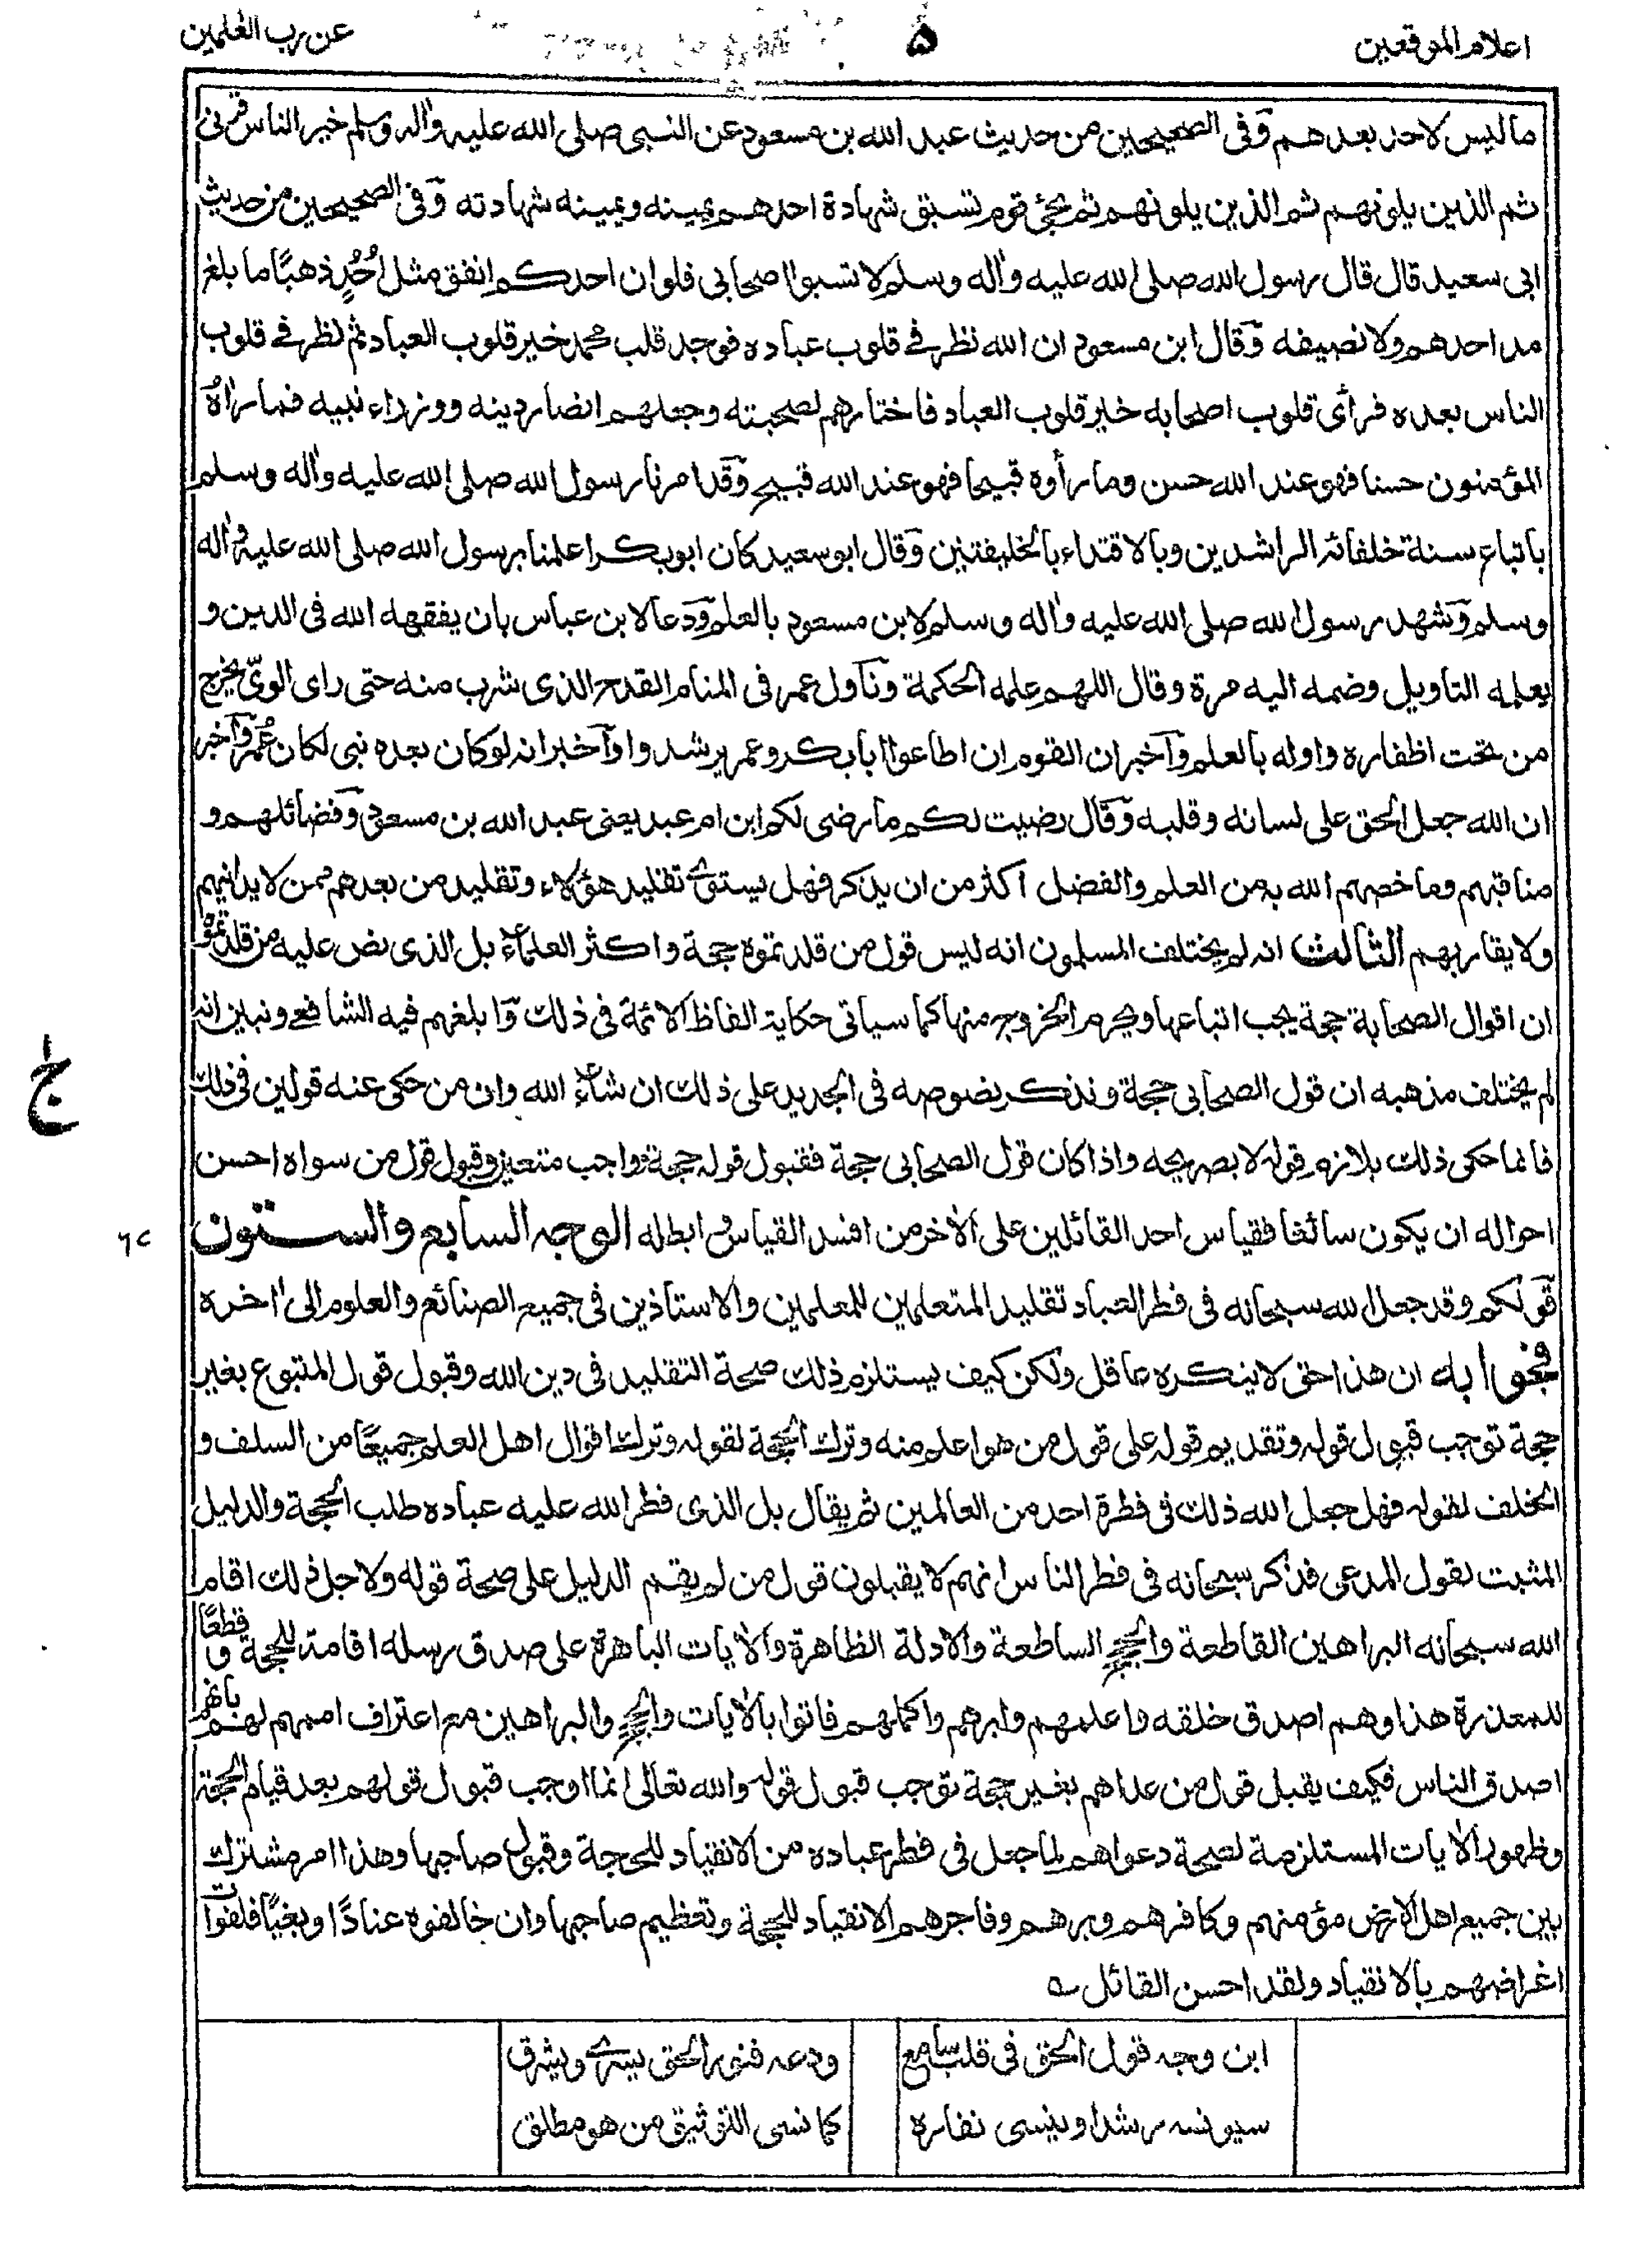 اعلام الموقعين
٥
عن رب العلمين
ما ليس لاحد بعدهم وفى الصحيحين من حديث عبد الله بن مسعود عن النبى صلى الله عليه واله وسلم خير الناس قرنى
ثم الذين يلونهم ثم الذين يلونهم ثم يجئ قوم تسبق شهادة احدهم يمينه ويمينه شهادته وفى الصحيحين من حديث
ابى سعيد قال قال رسول الله صلى الله عليه واله وسلم لا تسبوا اصحابى فلو ان احدكم انفق مثل اُحُدٍ ذهبًا ما بلغ
مد احدهم ولا نصيفه وقال ابن مسعود ان الله نظر فى قلوب عباده فوجد قلب محمد خير قلوب العباد ثم نظر فى قلوب
الناس بعده فرأى قلوب اصحابه خير قلوب العباد فاختارهم لصحبته وجعلهم انصار دينه ووزراء نبيه فما راٰه
المؤمنون حسنا فهو عند الله حسن وما رأوه قبيحا فهو عند الله قبيح وقد امرنا رسول الله صلى الله عليه واله وسلم
باتباع سنة خلفائه الراشدين وبالاقتداء بالخليفتين وقال ابو سعيد كان ابو بكر اعلمنا برسول الله صلى الله عليه واله
وسلم وشهد رسول الله صلى الله عليه واله وسلم لابن مسعود بالعلم ودعا لابن عباس بان يفقهه الله فى الدين و
يعلمه التاويل وضمه اليه مرة وقال اللهم علمه الحكمة وتاول عمر فى المنام القدح الذى شرب منه حتى راى الرىّ يخرج
من تحت اظفاره واوله بالعلم واخبر ان القوم ان اطاعوا ابا بكر وعمر يرشدوا واخبر انه لو كان بعده نبى لكان عُمر واخبر
ان الله جعل الحق على لسانه وقلبه وقال رضيت لكم ما رضى لكم ابن ام عبد يعنى عبد الله بن مسعود وفضائلهم و
مناقبهم وما خصهم الله به من العلم والفضل اكثر من ان يذكر فهل يستوى تقليد هؤلاء وتقليد من بعدهم ممن لا يدانيهم
ولا يقاربهم الثالث انه لم يختلف المسلمون انه ليس قول من قلدتموه حجة واكثر العلماء بل الذى نص عليه من قلدتموه
ان اقوال الصحابة حجة يجب اتباعها ويحرم الخروج منها كما سياتى حكاية الفاظ الائمة فى ذلك وابلغهم فيه الشافعى ونبين انه
لم يختلف مذهبه ان قول الصحابى حجة ونذكر نصوصه فى الجديد على ذلك ان شاء الله وان من حكى عنه قولين فى ذلك
فانما حكى ذلك بلازم قوله لا بصريحه واذا كان قول الصحابى حجة فقبول قوله حجة واجب متعين وقبول قول من سواه احسن
احواله ان يكون سائغا فقياس احد القائلين على الاٰخر من افسد القياس وابطله الوجه السابع والستون
٦٧
قولكم وقد جعل الله سبحانه فى فطر العباد تقليد المتعلمين للمعلمين والاستاذين فى جميع الصنائع والعلوم الى اٰخره
فجوابه ان هذا حق لا ينكره عاقل ولكن كيف يستلزم ذلك صحة التقليد فى دين الله وقبول قول المتبوع بغير
حجة توجب قبول قوله وتقديم قوله على قول من هو اعلم منه وترك الحجة لقوله وترك اقوال اهل العلم جميعًا من السلف و
الخلف لقوله فهل جعل الله ذلك فى فطرة احد من العالمين ثم يقال بل الذى فطر الله عليه عباده طلب الحجة والدليل
المثبت لقول المدعى فذكر سبحانه فى فطر الناس انهم لا يقبلون قول من لم يقم الدليل على صحة قوله ولاجل ذلك اقام
الله سبحانه البراهين القاطعة والحجج الساطعة والادلة الظاهرة والاٰيات الباهرة على صدق رسله اقامة للحجة و قطعًا
للمعذرة هذا وهم اصدق خلقه واعلمهم وابرهم واكملهم فاتوا بالاٰيات والحجج والبراهين مع اعتراف اممهم لهم بانهم
اصدق الناس فكيف يقبل قول من عداهم بغير حجة توجب قبول قوله والله تعالى انما اوجب قبول قولهم بعد قيام الحجة
وظهور الاٰيات المستلزمة لصحة دعواهم لما جعل فى فطر عباده من الانقياد للحجة وقبول صاحبها وهذا امر مشترك
بين جميع اهل الارض مؤمنهم وكافرهم وبرهم وفاجرهم الانقياد للحجة وتعظيم صاحبها وان خالفوه عنادًا وبغيًا فلفوات
اغراضهم بالانقياد ولقد احسن القائل
ابن وجه قول الحق فى قلب سامع ودعه فنور الحق يسرى ويشرق
سيونسه رشدا وينسى نفاره كما نسى التوثيق من هو مطلق